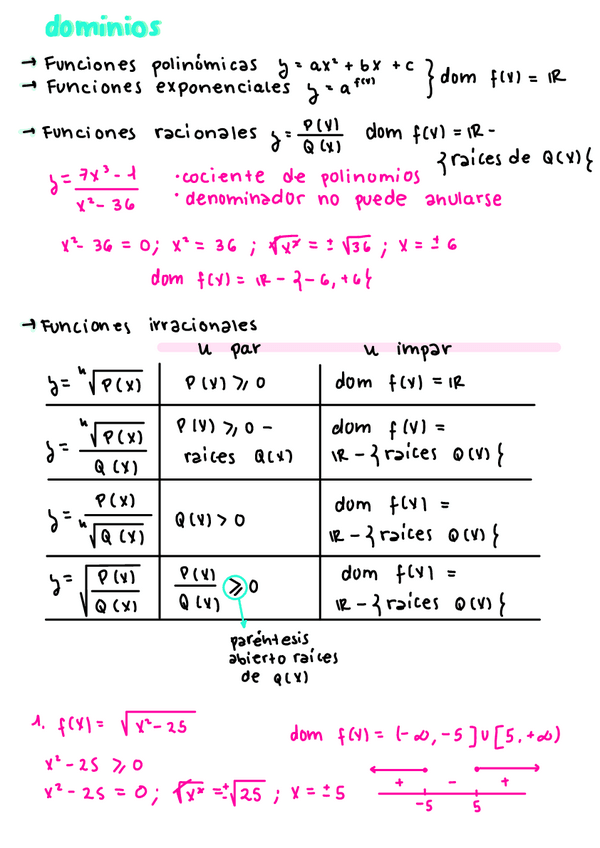 dominios
→ Funciones polinómicas y = ax² + bx + c } dom f(x) = ℝ
→ Funciones exponenciales y = a^f(x)
→ Funciones racionales y = P(x)/Q(x) dom f(x) = ℝ -
{raíces de Q(x)}
y = 7x³ - 1 / x² - 36 · cociente de polinomios
· denominador no puede anularse
x² - 36 = 0; x² = 36 ; √x² = ± √36 ; x = ± 6
dom f(x) = ℝ - {-6, +6}
→ Funciones irracionales
n par n impar
y = ⁿ√P(x) P(x) ⩾ 0 dom f(x) = ℝ
y = ⁿ√P(x) / Q(x) P(x) ⩾ 0 - raíces Q(x) dom f(x) = ℝ - {raíces Q(x)}
y = P(x) / ⁿ√Q(x) Q(x) > 0 dom f(x) = ℝ - {raíces Q(x)}
y = √P(x)/Q(x) P(x)/Q(x) ⩾ 0 dom f(x) = ℝ - {raíces Q(x)}
paréntesis
abierto raíces
de Q(x)
1. f(x) = √x² - 25
dom f(x) = (-∞, -5] ∪ [5, +∞)
x² - 25 ⩾ 0
x² - 25 = 0; √x² = ±√25 ; x = ± 5
+ - +
-5 5